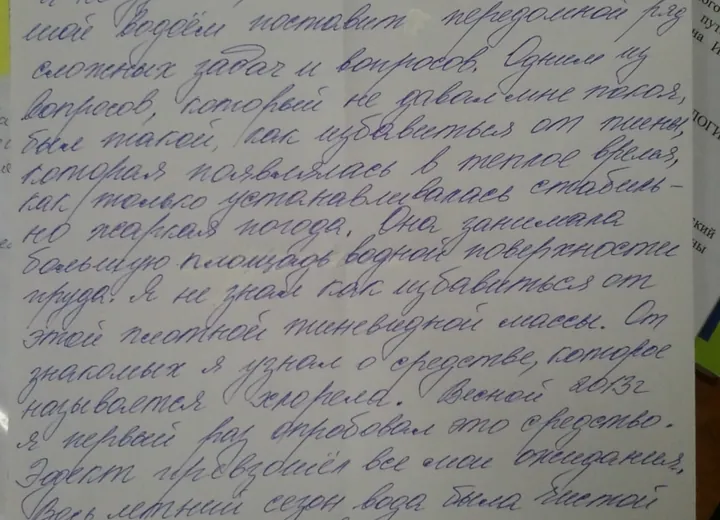 мой водоём поставит передомной ряд
сложных задач и вопросов. Одним из
вопросов, который не давал мне покоя,
был такой, как избавиться от тины,
которая появлялась в теплое время,
как только устанавливалась стабиль-
но жаркая погода. Она занимала
большую площадь водной поверхности
пруда. Я не знал как избавиться от
этой плотной тиневидной массы. От
знакомых я узнал о средстве, которое
называется хлорела. Весной 2013г
я первый раз опробовал это средство.
Эфект превзошёл все мои ожидания,
Весь летний сезон вода была чистой